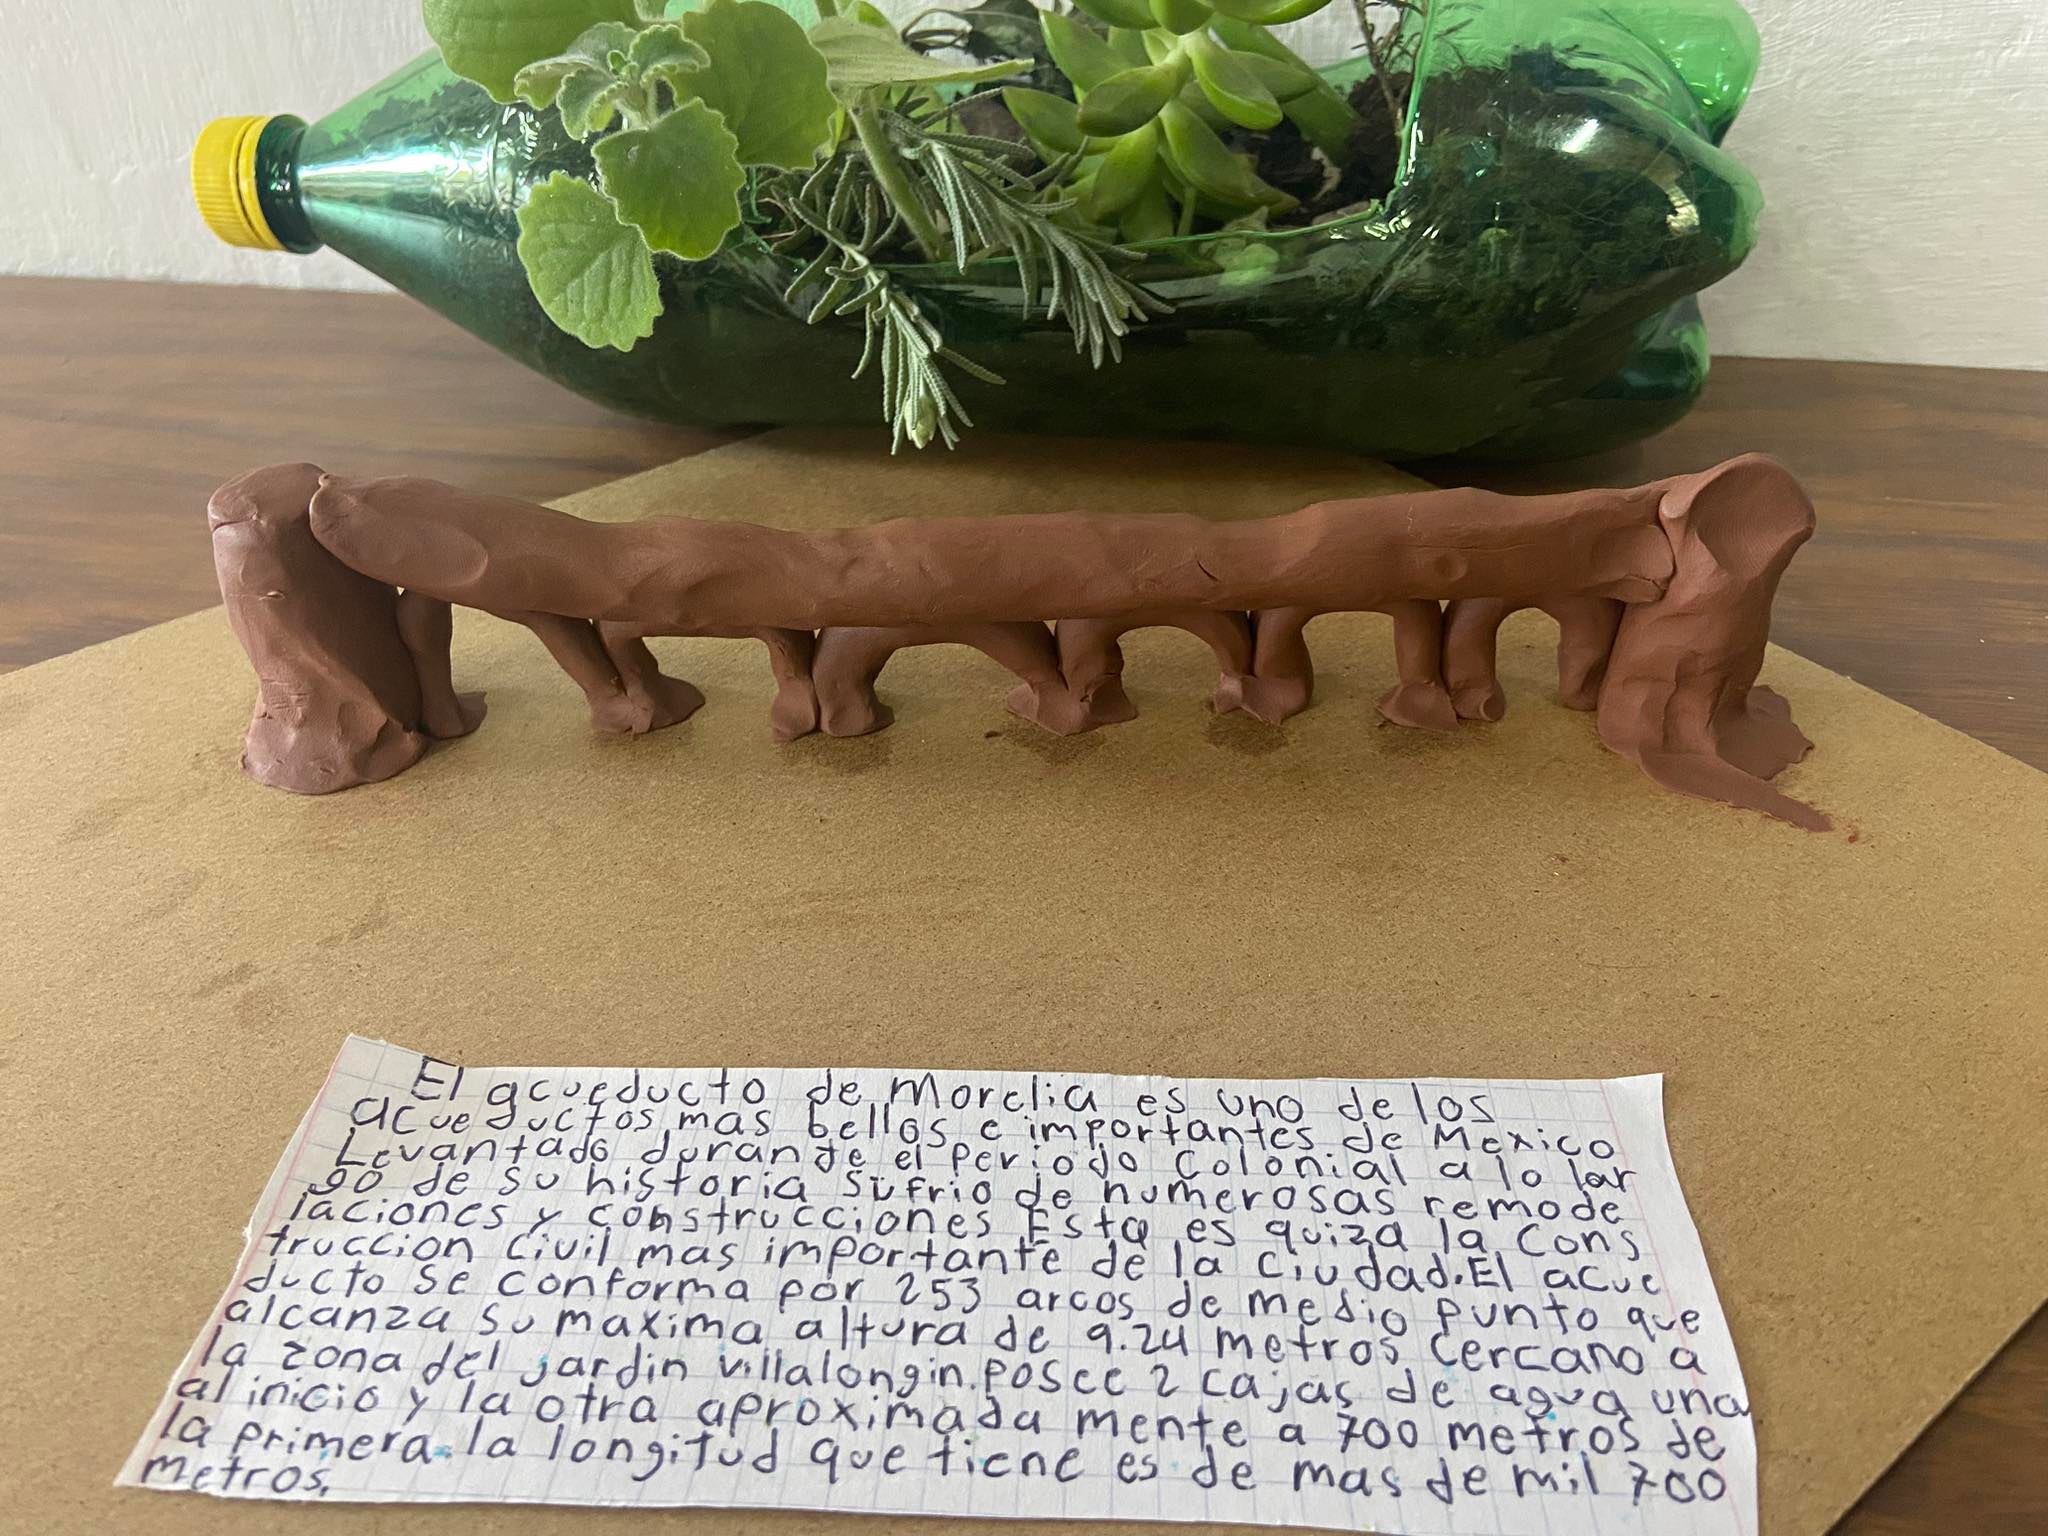 El acueducto de Morelia es uno de los
acueductos mas bellos e importantes de Mexico
Levantado durante el periodo colonial a lo lar
go de su historia sufrio de numerosas remode
laciones y construcciones Esta es quiza la cons
truccion civil mas importante de la ciudad. El acue
ducto se conforma por 253 arcos de medio punto que
alcanza su maxima altura de 9.24 metros, cercano a
la zona del jardin villalongin. posee 2 cajas de agua una
al inicio y la otra aproximada mente a 700 metros de
la primera. la longitud que tiene es de mas de mil 700
metros.